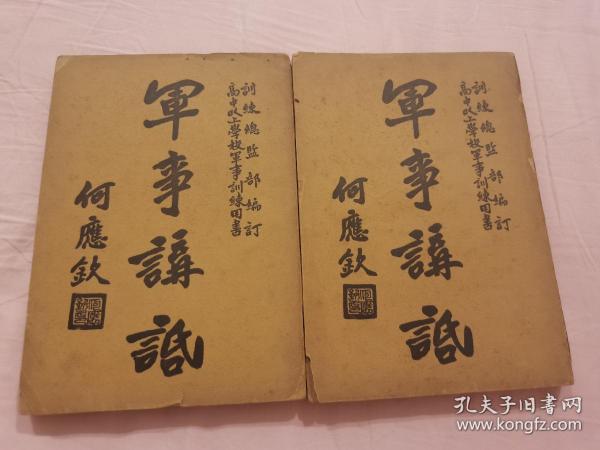 訓練總監部編訂
高中以上學校軍事訓練用書
軍事講話
何應欽
訓練總監部編訂
高中以上學校軍事訓練用書
軍事講話
何應欽
孔夫子旧书网
www.kongfz.com